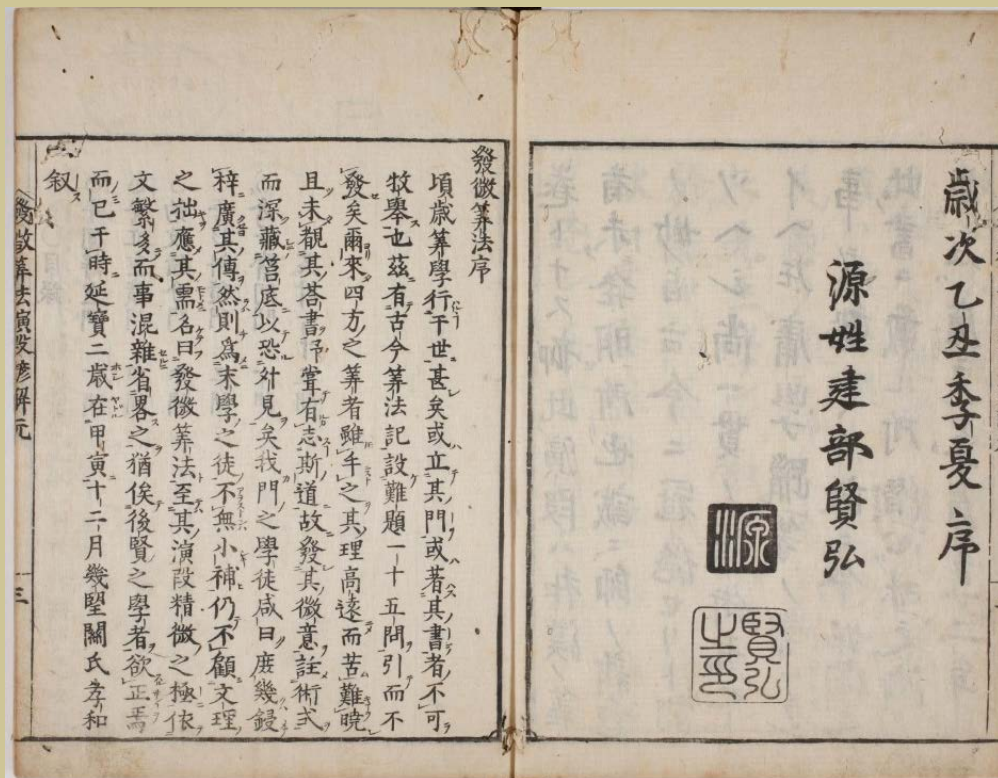 歳次乙丑季夏序
源姓建部賢弘
源
賢弘
之印
發微筭法序
頃歳筭學行干世甚矣或立其門或著其書者不可
枚舉也茲有古今筭法記設難題一十五問引而不
發矣爾來四方之筭者雖手之其理高遠而苦難曉
且未覩其荅書予甞有志斯道故發其微意註術式
而深藏筥底以恐外見矣我門之學徒咸曰庶幾鋟
梓廣其傳然則爲末學之徒不無小補仍不顧文理
之拙應其需名曰發微筭法至其演段精微之極依
文繁多而事混雜省畧之猶俟後賢之學者欲正焉
而已于時延寶二歳在甲寅十二月幾望關氏孝和
叙
發微筭法演段諺解元
三